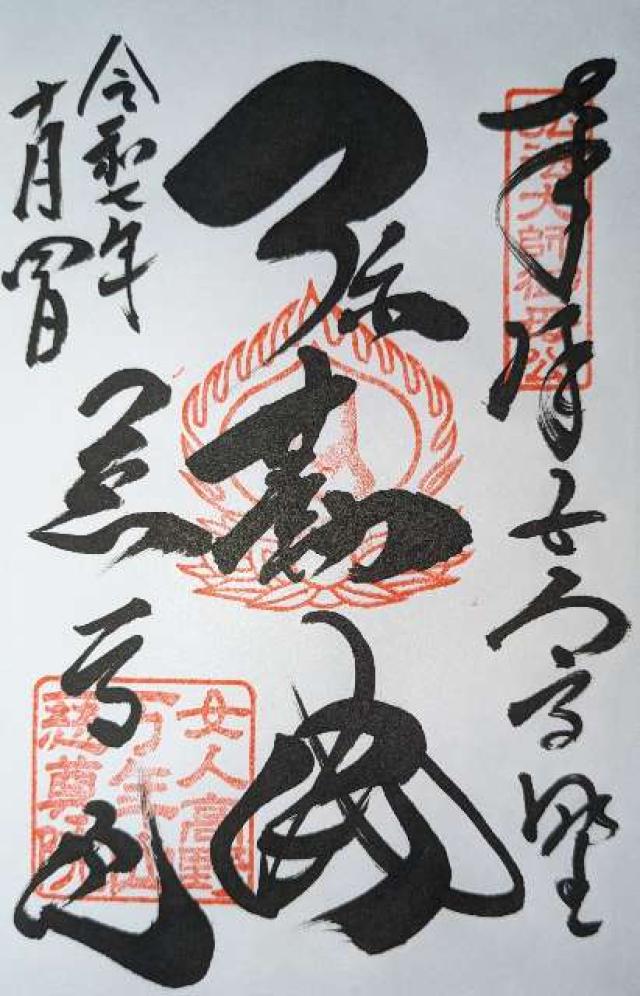 奉拝 女人高野
弘法大師御母公
弥勒
慈尊院
女人高野
万年山
慈尊院
令和七年
十月四日